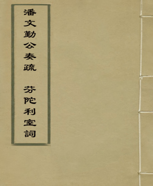 潘文勤公奏疏 芬陀利室詞